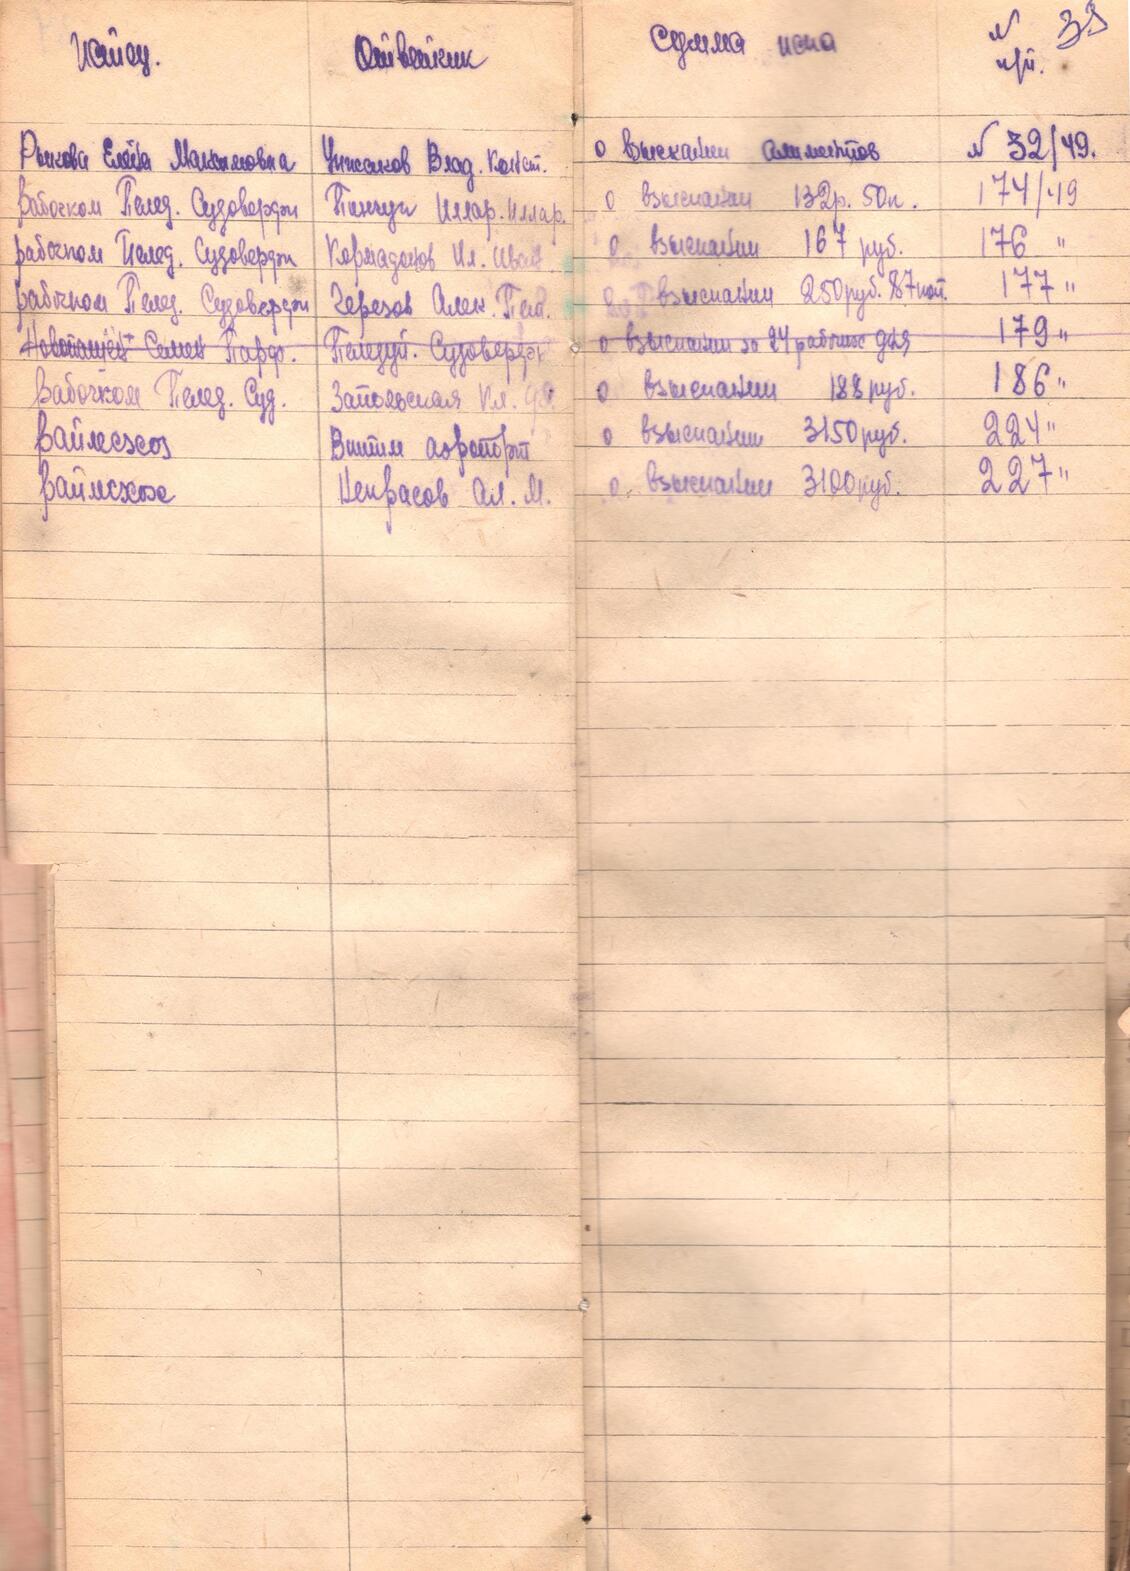 Истец. Ответчик Сумма иска N 33
п/п.
Рыкова Елена Максимовна Влад. Конст. о взыскании алиментов N 32/49.
Рабочком Пелед. Судоверфи Панчук Иллар. Иллар. о взыскании 132р. 50к. 174/49
Рабочком Пелед. Судоверфи Ил. Иван о взыскании 167 руб. 176 "
Рабочком Пелед. Судоверфи Черезов Алек. о взыскании 250 руб. 87 коп. 177 "
Семен Парф. Пеледуй. Судоверфь о взыскании за 24 рабочих дня 179 "
Рабочком Пелед. Суд. Запольская Кл. о взыскании 188 руб. 186 "
Райлесхоз Витим аэропорт о взыскании 3150 руб. 224 "
Райлесхоз Некрасов Ал. М. о взыскании 3100 руб. 227 "